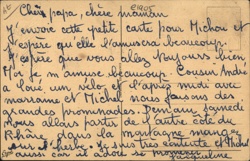 Cher papa, chère maman
J'envoie cette petite carte pour Michou et
j'espère qu'elle l'amusera beaucoup.
J'espère que vous allez toujours bien,
Moi je m'amuse beaucoup. Cousin André
a loué un vélo et l'après midi avec
marraine et Michel nous faisons des
grandes promenades. Demain samedi
nous allons partir de l'autre côté du
Rhône dans la montagne manger
sur l'herbe. Je suis très contente et Michel
aussi car il adore se promener
Jacqueline